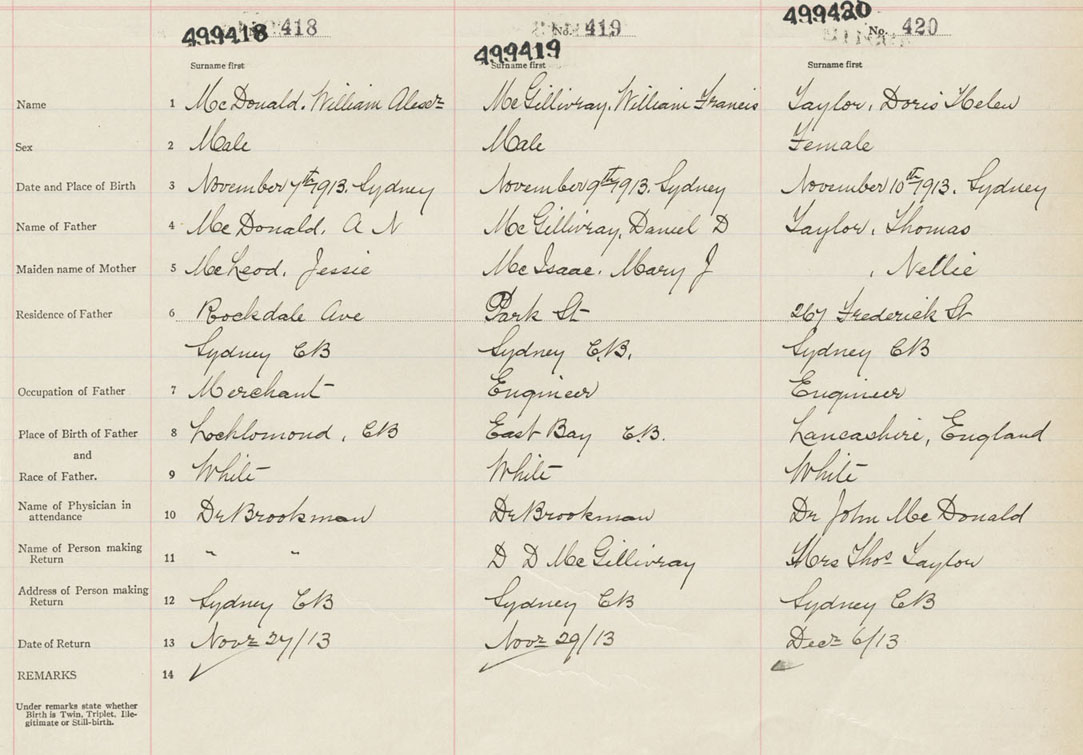 499418 418 No. 419 499420 No. 420
499419
Surname first Surname first Surname first
Name 1 McDonald, William Alexr McGillivray, William Francis Taylor, Doris Helen
Sex 2 Male Male Female
Date and Place of Birth 3 November 7th 1913, Sydney November 9th 1913, Sydney November 10th 1913, Sydney
Name of Father 4 McDonald, A N McGillivray, Daniel D Taylor, Thomas
Maiden name of Mother 5 McLeod, Jessie McIsaac, Mary J , Nellie
Residence of Father 6 Rockdale Ave Park St 267 Frederick St
Sydney CB Sydney C.B. Sydney CB
Occupation of Father 7 Merchant Engineer Engineer
Place of Birth of Father 8 Lochlomond, CB East Bay C.B. Lancashire, England
and
Race of Father. 9 White White White
Name of Physician in
attendance 10 Dr Brookman Dr Brookman Dr John McDonald
Name of Person making
Return 11 " " D D McGillivray Mrs Thos Taylor
Address of Person making
Return 12 Sydney CB Sydney CB Sydney CB
Date of Return 13 Novr 27/13 Novr 29/13 Decr 6/13
REMARKS 14
Under remarks state whether
Birth is Twin, Triplet, Ille-
gitimate or Still-birth.